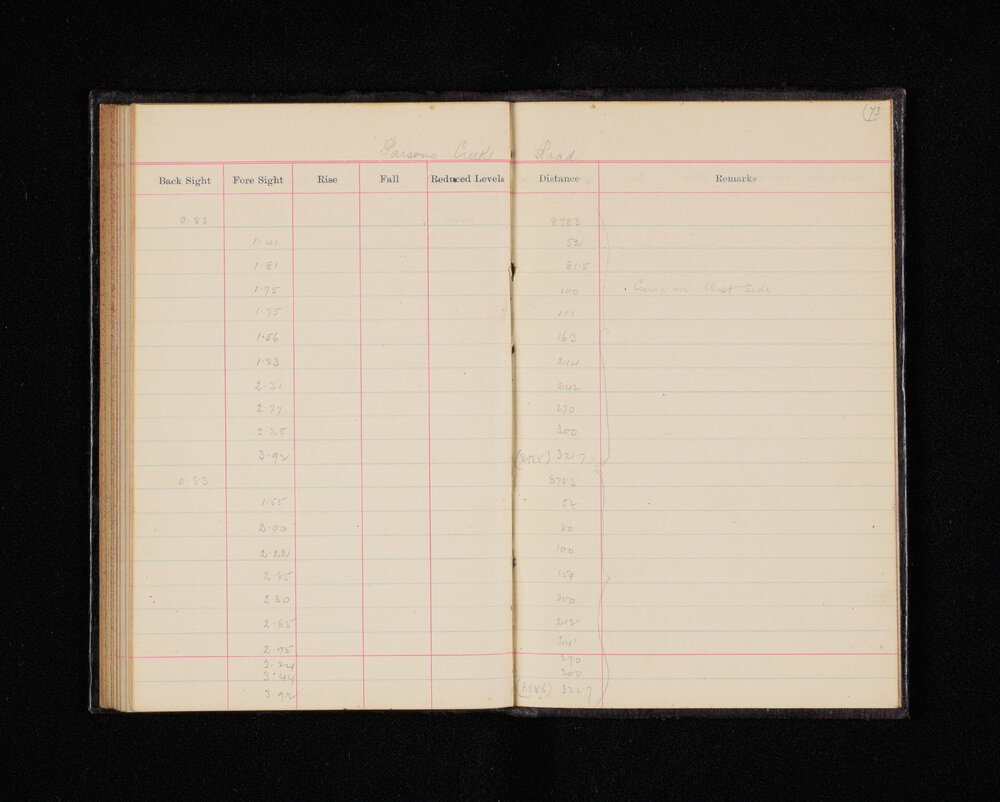 73
Parsons Creek Road
Back Sight Fore Sight Rise Fall Reduced Levels Distance Remarks
0.83 8783
1.41 52
1.81 81.5
1.75 100 Curve on West Side
1.75 111
1.56 163
1.83 214
2.31 242
2.77 270
3.25 300
3.92 321.7
0.83 8783
1.55 52
2.00 80
2.22 100
2.85 159
2.80 200
2.85 212
2.95 241
3.24 270
3.44 300
3.92 (8985) 322.7